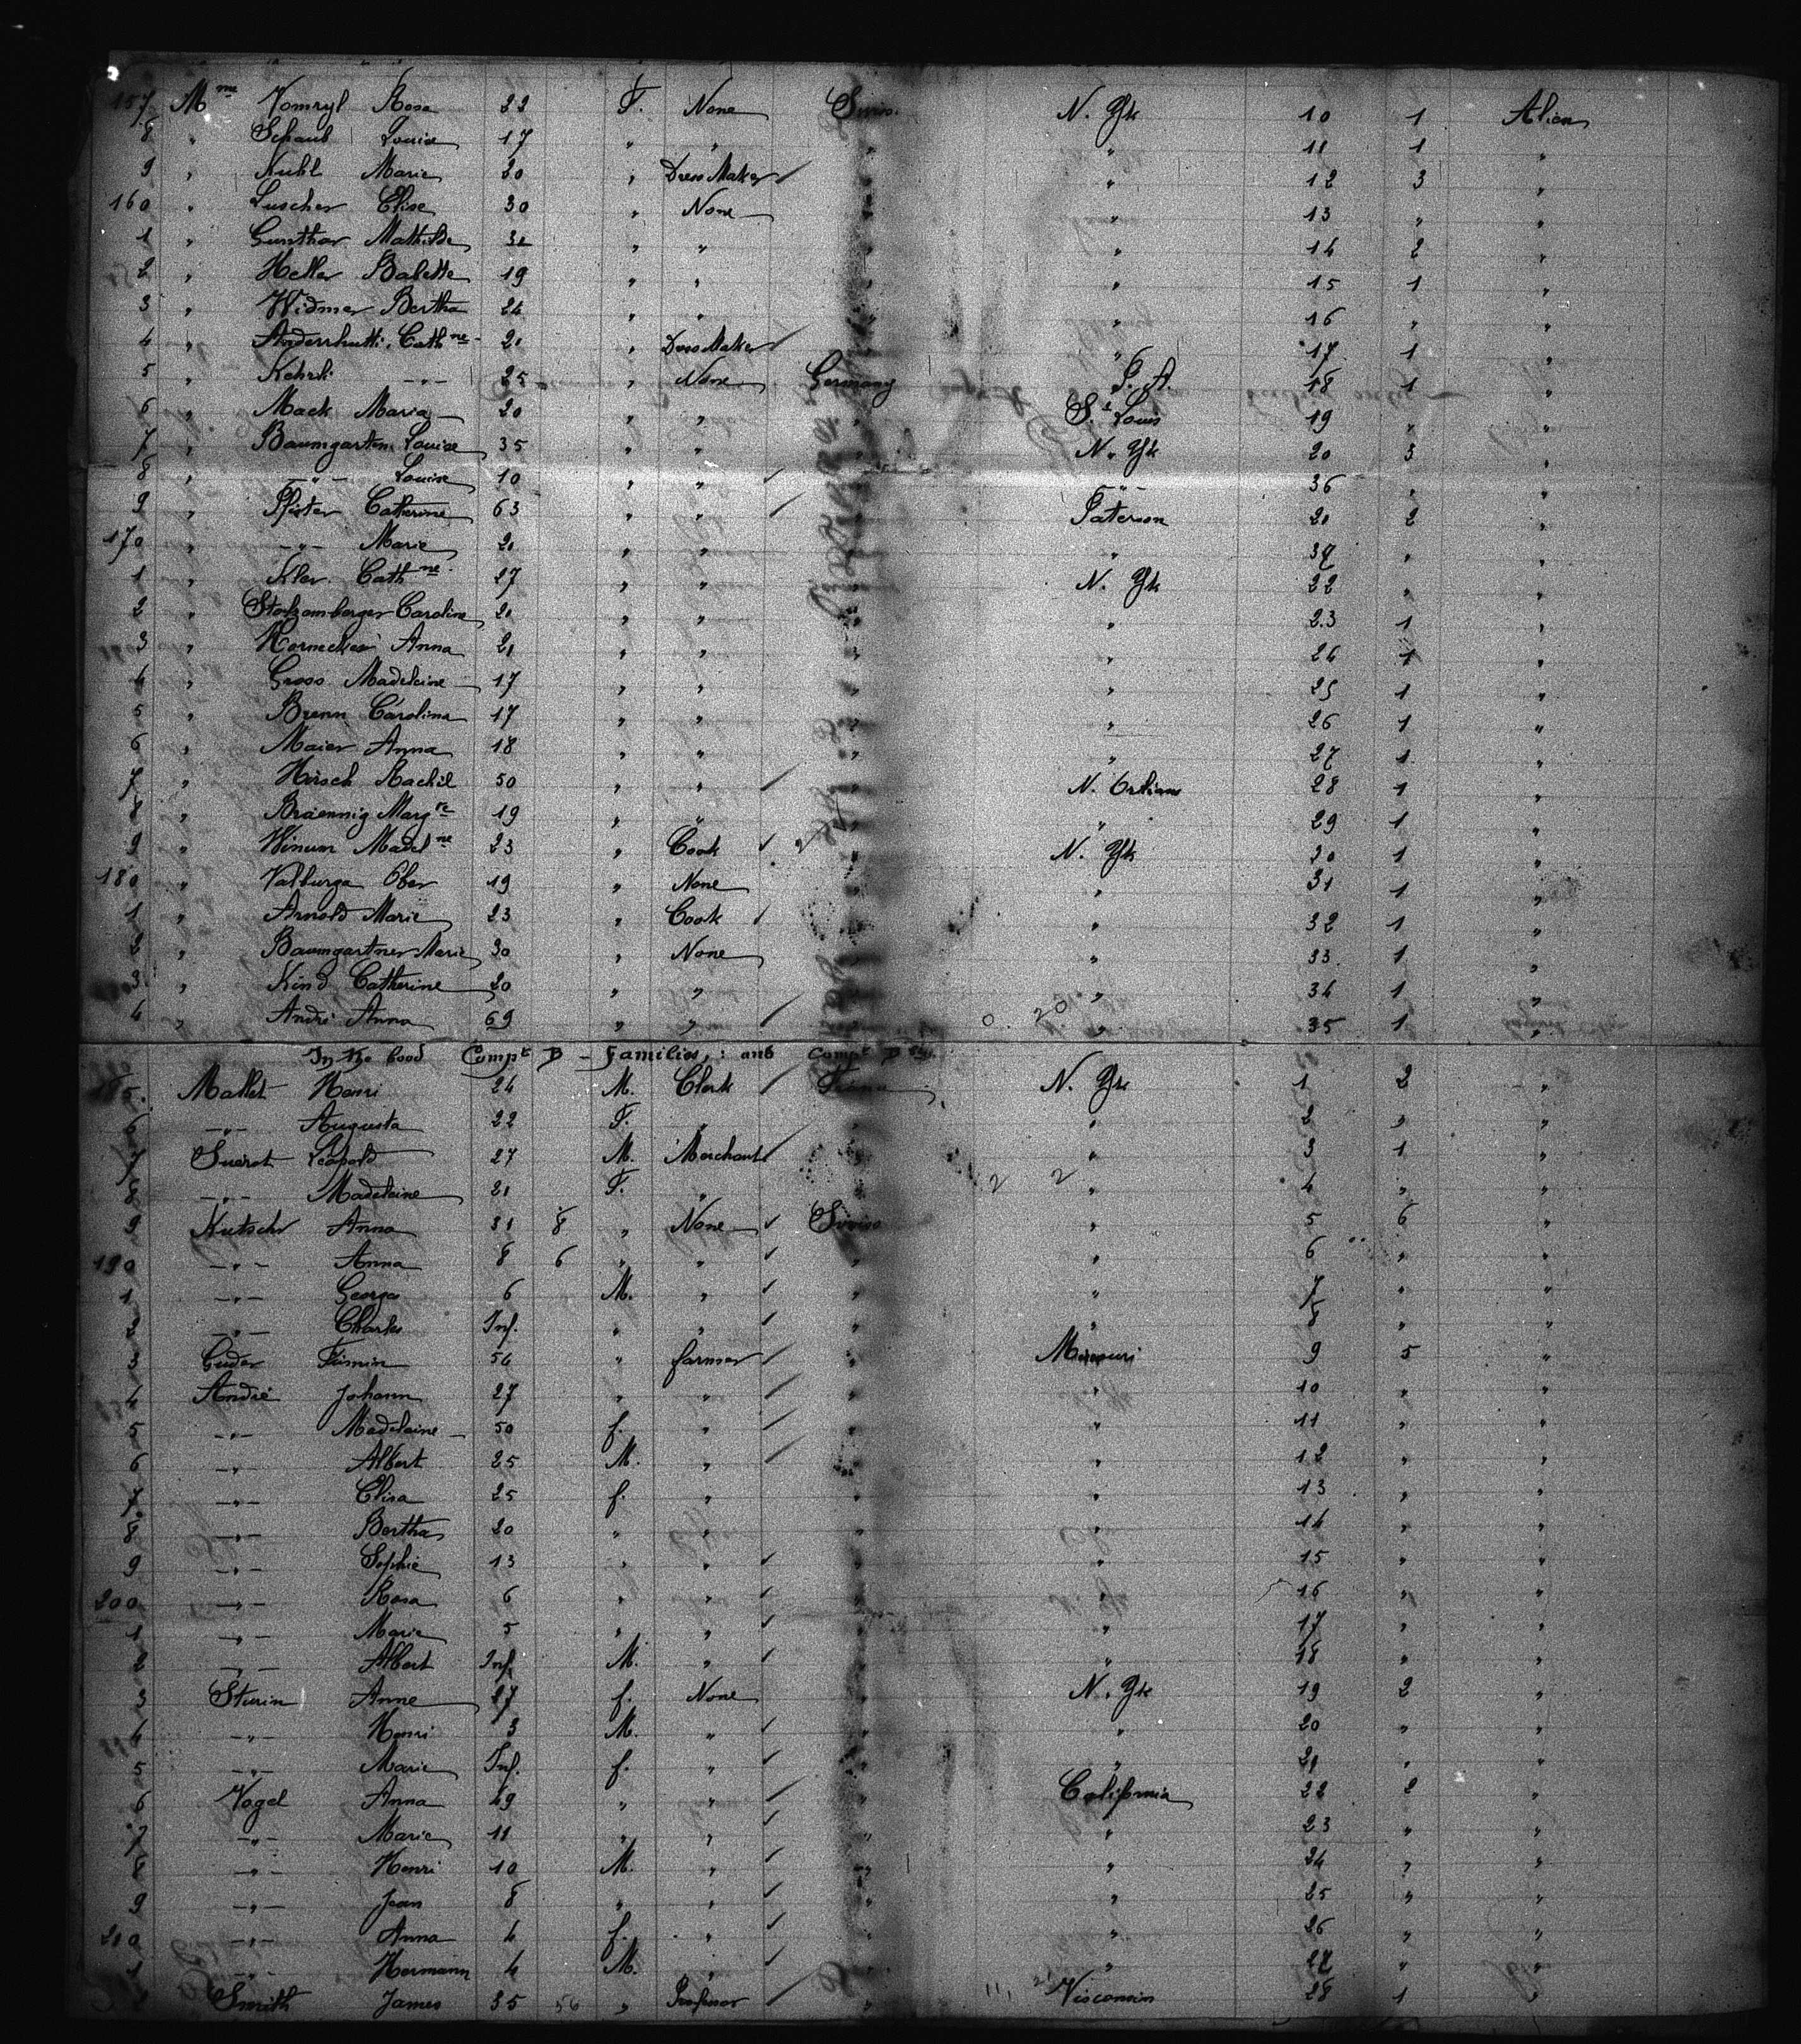 157 Mme Vomryl Rosa 22 F. None Swiss. N. Yk 10 1 Alien
8 " Schaub Louise 17 " " " " 11 1 "
9 " Kuhl Marie 20 " Dress Maker " " 12 3 "
160 " Luscher Elise 30 " None " " 13 " "
1 " Gunthar Mathilde " " " " 14 2 "
2 " Heller Babette 19 " " " " 15 1 "
3 " Widmer Bertha 24 " " " " 16 " "
4 " Cathne 21 " Dress Maker " " 17 1 "
5 " Kehrli -"- 25 " None Germany 18 1 "
6 " Mack Maria 20 " " " St Louis 19 " "
7 " Baumgarten Louise 35 " " " N. Yk 20 3 "
8 " -"- Louise 10 " " " -"- 36 " "
9 " Pfister Catherine 63 " " " Paterson 21 2 "
170 " -"- Marie 21 " " " " 37 " "
1 " Kler Cathne 27 " " " N. Yk 22 " "
2 " Caroline 21 " " " " 23 1 "
3 " Anna 21 " " " " 24 1 "
4 " Gross Madeleine 17 " " " " 25 1 "
5 " Brenn Carolina 17 " " " " 26 1 "
6 " Maier Anna 18 " " " " 27 1 "
7 " Hirsch Rachel 50 " " " N. Orlians 28 1 "
8 " Braennig Margre 19 " " " " 29 1 "
9 " Winum Madelne 23 " Cook " N. Yk 30 1 "
180 " Valburga Ober 19 " None " " 31 1 "
1 " Arnold Marie 23 " Cook " " 32 1 "
2 " Baumgartner Marie 30 " None " " 33 1 "
3 " Kind Catherine 20 " " " " 34 1 "
4 " André Anna 69 " " " " 35 1 "
In the Compt D - Families, : and Compt D
185 Mallet Henri 24 M. Clerk N. Yk 1 2 "
6 -"- Augusta 22 F. " " " 2 " "
7 Leopold 27 M. Merchant " " 3 1 "
8 -"- Madeleine 21 F. " " " 4 " "
9 Kutschr Anna 31 8 " None Swiss " 5 6 "
190 -"- Anna 8 6 " " " " 6 " "
1 -"- Georges 6 M. " " " 7 " "
2 -"- Charles Inf. " " " " 8 " "
3 Guder 56 " farmer " Missouri 9 5 "
4 André Johann 27 " " " " 10 " "
5 -"- Madelaine 50 f. " " " 11 " "
6 -"- Albert 25 M. " " " 12 " "
7 -"- Elisa 25 f. " " " 13 " "
8 -"- Bertha 20 " " " " 14 " "
9 -"- Sophie 13 " " " " 15 " "
200 -"- Rosa 6 " " " " 16 " "
1 -"- Marie 5 " " " " 17 " "
2 -"- Albert Inf. M. " " " 18 " "
3 Sturin Anne 27 f. None " N. Yk 19 2 "
4 -"- Henri 3 M. " " " 20 " "
5 -"- Marie Inf. f. " " " 21 " "
6 Vogel Anna 49 " " " California 22 2 "
7 -"- Marie 11 " " " " 23 " "
8 -"- Henri 10 M. " " " 24 " "
9 -"- Jean 8 " " " " 25 " "
210 -"- Anna 4 f. " " " 26 " "
1 -"- Hermann 4 M. " " " 27 " "
2 Smith James 35 56 " Professor " Visconsin 28 1 "